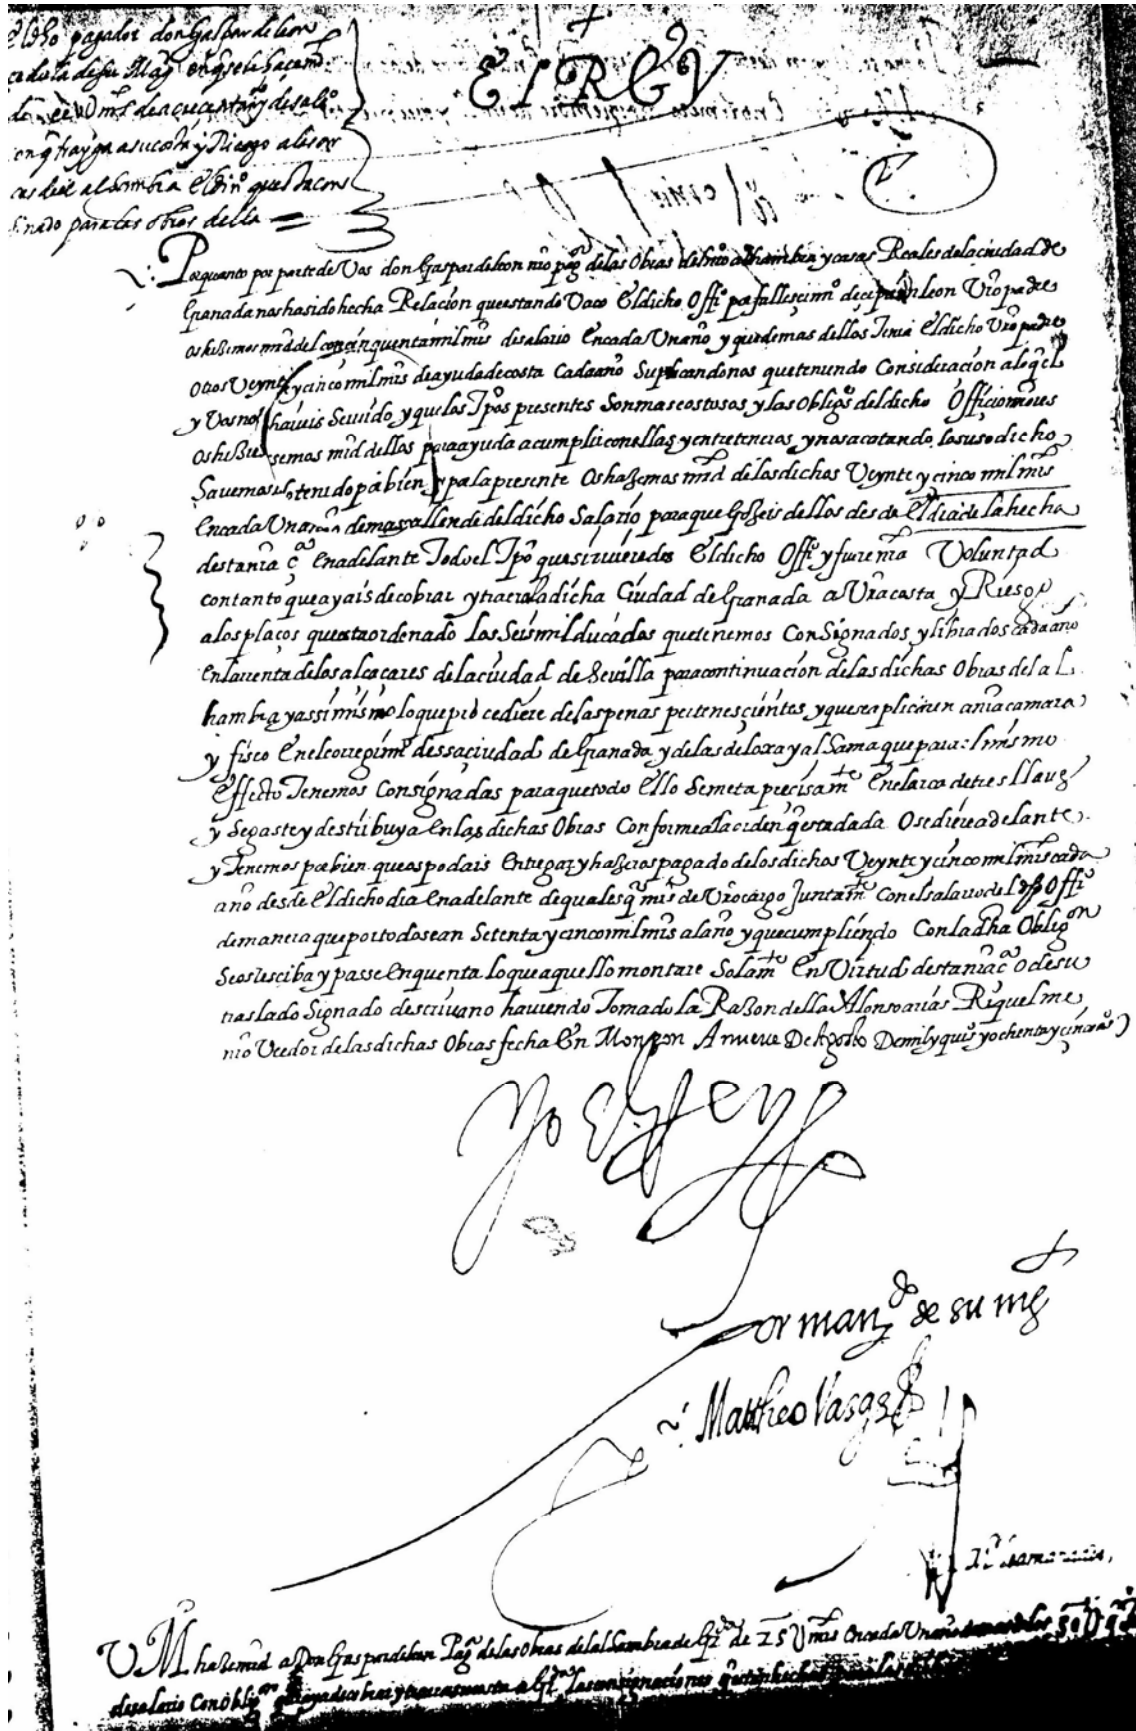 El Rey
el dho pagador don Gaspar de leon
cedula de su Magd en q se le hace md
de xxvU mrs de acrecentamyº de salº
con q trayga a su costa y Riesgo a las ar
cas del alhambra el dinº questa con
sinado para las obras della
Por quanto por parte de Vos don Gaspar de leon nro pagor de las Obras del alhambra y casas Reales de la ciudad de
Granada nos ha sido hecha Relacion que estando Vaco El dicho Offº por fallescimº de leon Vro padre
os hezimos mrd del con cinquenta mil mrs de salario En cada Un año y que demas dellos Tenia El dicho Vro padre
otros Veynte y cinco mil mrs de ayuda de costa Cada año Suplicandonos que teniendo Consideracion a lo q el
y Vos nos haveis Servido y que los Tpos presentes Son mas costosos y las Obligºs del dicho Officio mayores
os hiziessemos mrd dellos para ayuda a cumplir con ellas y entreteneros, y nos acatando lo suso dicho
havemos lo tenido por bien y por la presente Os hazemos mrd de los dichos Veynte y cinco mil mrs
En cada Un año demas y allende del dicho Salario para que Gozeis dellos desde El dia de la hecha
desta nra cª En adelante Todo el Tpo que sirvieredes El dicho Offº y fuere nra Voluntad
con tanto que ayais de cobrar y traer a la dicha Ciudad de Granada a Vra costa y Riesgo
a los plaços que esta ordenado los Seis mil ducados que tenemos ConSignados y librados cada año
En la renta de los alcaçares de la ciudad de Sevilla para continuacion de las dichas Obras del a L
hambra y assimismo lo que procediere de las penas pertenescientes y que se aplicaren a nra camara
y fisco En el corregimº dessa ciudad de Granada y de las de loxa y alhama que para el mismo
Effecto Tenemos Consignadas para que todo Ello Se meta precisamte En el arca de tres llaves
y Se gaste y destribuya En las dichas Obras Conforme a la orden q esta dada O se diere adelante
y Tenemos por bien que os podais Entregar y hazeros pagado de los dichos Veynte y cinco mil mrs cada
año desde El dicho dia En adelante de qualesqr mrs de Vro cargo Juntamte Con el salario del dho Offº
de manera que por todo sean Setenta y cinco mil mrs al año y que cumpliendo Con la dha Obligon
Se os resciba y passe En quenta lo que a quello montare Solamte En Virtud desta nra cª O de su
traslado Signado de scrivano haviendo Tomado la Razon della Alonso arias Riquelme
nro Veedor de las dichas Obras fecha En Monçon A nueve De Agosto De mil y quiºs y ochenta y cinco años
Yo El Rey
Por mando de su mgd
Mattheo Vasqz
V M haze mrd a Don Gaspar de leon Pagr de las obras del alhambra de Grda de 25U mrs En cada Un año demas de los 50U q tiene
de salario Con obligon que aya de cobrar y traer a su costa a Grda las consignaciones q estan hechas para las